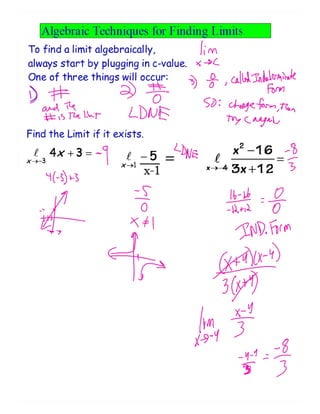 Algebraic Techniques for Finding Limits
To find a limit algebraically,
always start by plugging in c-value.
One of three things will occur:
lim
x→c
1) #
and the
# is the limit
2) #/0
LDNE
3) 0/0, called Indeterminate
Form
SO: change form, then
try c again
Find the Limit if it exists.
ℓ x→-3 4x + 3 = -9
4(-3)+3
ℓ x→1 -5/x-1 = LDNE
-5/0
x≠1
ℓ x→-4 x²-16/3x+12 = -8/3
16-16/-12+12 = 0/0
IND. Form
(x+4)(x-4)/3(x+4)
lim x→-4 x-4/3
-4-4/3 = -8/3